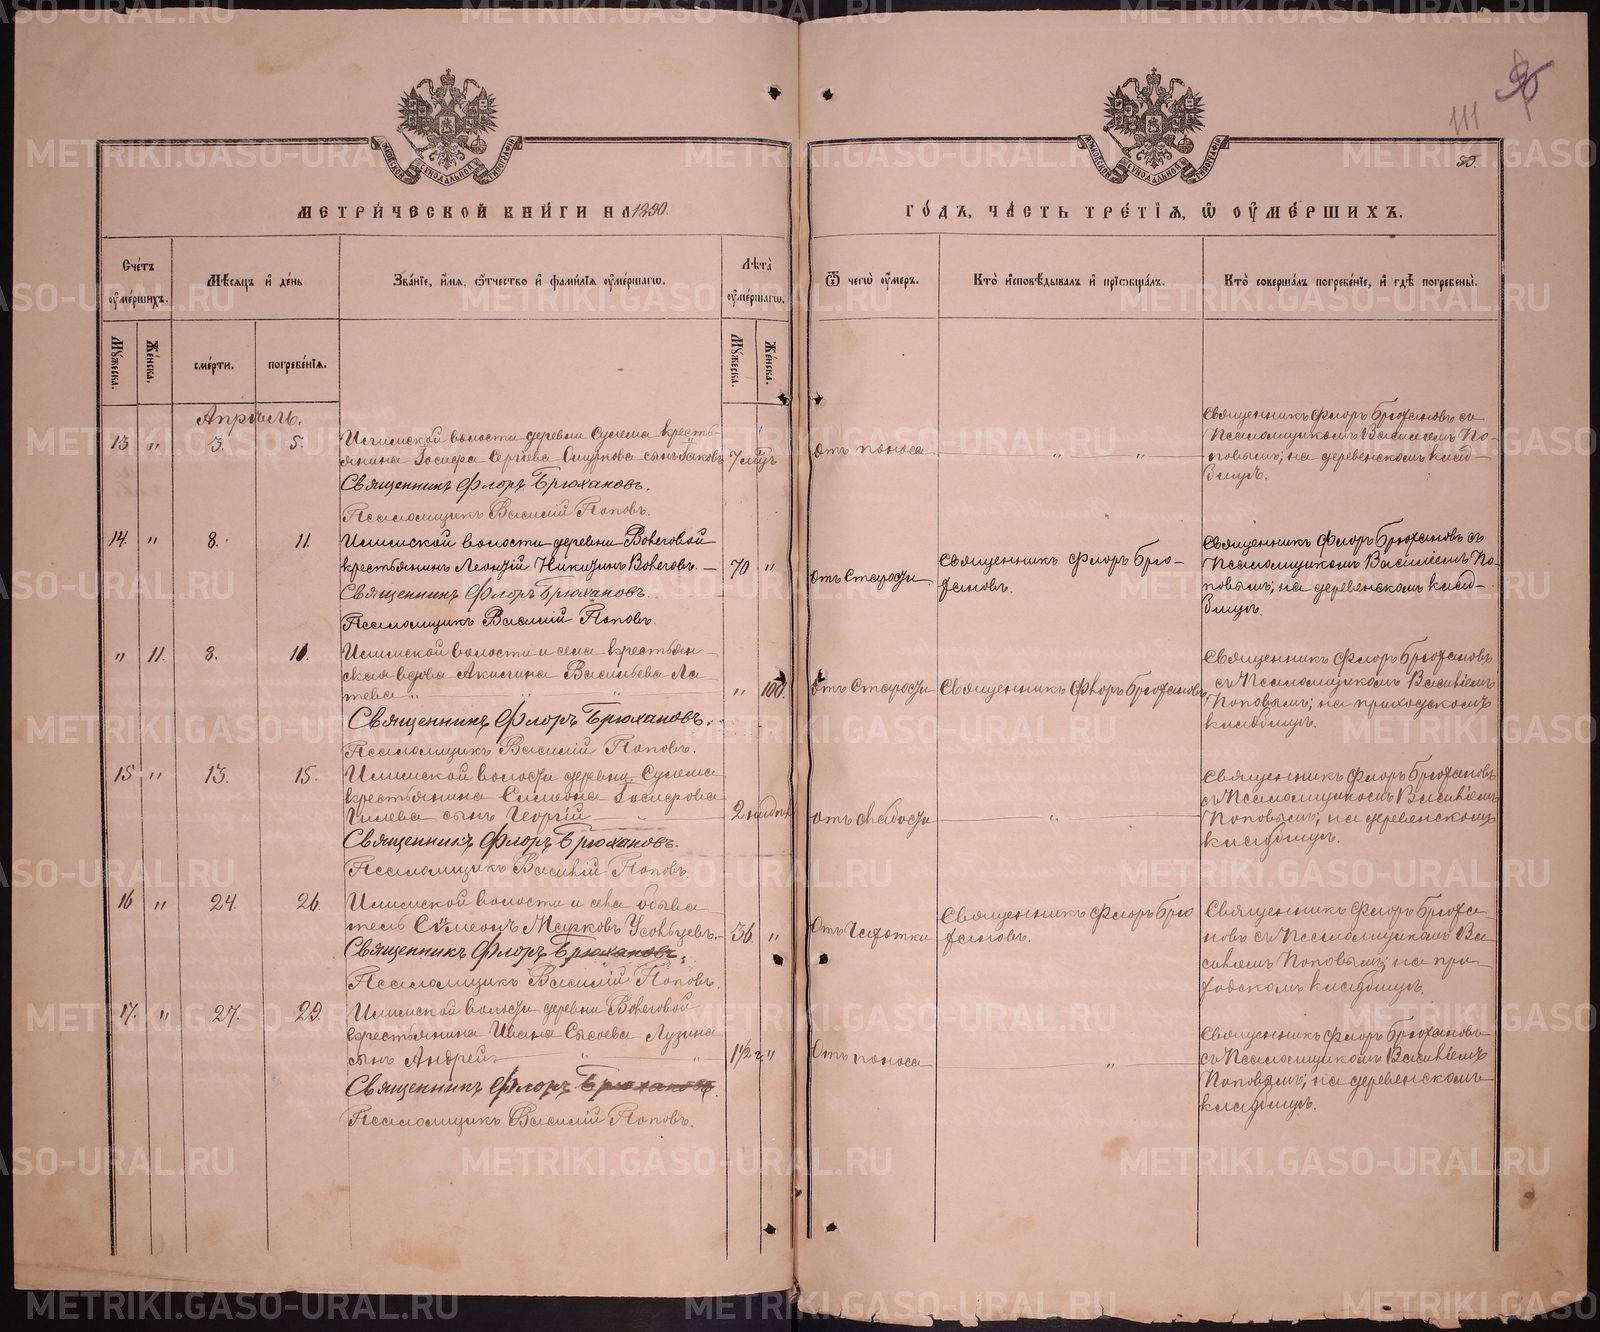 111
80.
МОСКОВСКОЙ СѴНОДАЛЬНОЙ ТИПОГРАФІИ
МОСКОВСКОЙ СѴНОДАЛЬНОЙ ТИПОГРАФІИ
МЕТРИ́ЧЕСКОЙ КНИ́ГИ НА 1890
ГО́ДЪ, ЧА́СТЬ ТРЕ́ТІѦ, Ѿ ОУМЕ́РШИХЪ.
Сче́тъ оуме́ршихъ.
Мѣ́сяцъ и де́нь
Зва́ніе, и́мя, ѻ҆́тчество и фами́лія оуме́ршагѡ.
Лѣ́та оуме́ршагѡ.
Ѿ чегѡ̀ оу́меръ.
Кто̀ исповѣ́дывалъ и прїѡбща́лъ.
Кто̀ соверша́лъ погребе́ніе, и гдѣ̀ погребены̀.
Мꙋ́жеска.
Же́нска.
сме́рти.
погребе́нїѧ.
Мꙋ́жеска.
Же́нска.
Апрѣль.
13 " 3. 5.
Илимской волости деревни Сулема кресть-
янина Іосифа Сергѣева сынъ Іаковъ 7 мѣс
Священникъ Флоръ Брюхановъ.
Псаломщикъ Василій Поповъ.
отъ поноса
" "
Священникъ Флоръ Брюхановъ съ
Псаломщикомъ Василіемъ По-
повымъ; на деревенскомъ клад-
бищѣ.
14. " 8. 11.
Илимской волости деревни
крестьянинъ Леонтій Никитинъ 70 "
Священникъ Флоръ Брюхановъ.
Псаломщикъ Василій Поповъ.
отъ старости
Священникъ Флоръ Брю-
хановъ.
Священникъ Флоръ Брюхановъ съ
Псаломщикомъ Василіемъ По-
повымъ; на деревенскомъ клад-
бищѣ.
" 11. 8. 10.
Илимской волости и села крестьян-
ская вдова Акилина Васильева Ла-
тева " " " 100
Священникъ Флоръ Брюхановъ.
Псаломщикъ Василій Поповъ.
отъ старости
Священникъ Флоръ Брюхановъ
Священникъ Флоръ Брюхановъ
съ Псаломщикомъ Василіемъ
Поповымъ; на приходскомъ
кладбищѣ.
15 " 13. 15.
Илимской волости деревни Сулема
крестьянина Симеона Іосифова
сынъ Георгій " 2 недѣли
Священникъ Флоръ Брюхановъ.
Псаломщикъ Василій Поповъ.
отъ слабости
"
Священникъ Флоръ Брюхановъ
съ Псаломщикомъ Василіемъ
Поповымъ; на деревенскомъ
кладбищѣ.
16 " 24. 26.
Илимской волости и села обыва-
тель Симеонъ Марковъ Усольцевъ. 36 "
Священникъ Флоръ Брюхановъ.
Псаломщикъ Василій Поповъ.
Отъ чахотки
Священникъ Флоръ Брю
хановъ.
Священникъ Флоръ Брюха-
новъ съ Псаломщикомъ Ва-
силіемъ Поповымъ; на при-
ходскомъ кладбищѣ.
17. " 27. 29.
Илимской волости деревни
крестьянина Ивана Сысоева Лузина
сынъ Андрей " " 1 1/2 г. "
Священникъ Флоръ Брюхановъ.
Псаломщикъ Василій Поповъ.
Отъ поноса
"
Священникъ Флоръ Брюхановъ
съ Псаломщикомъ Василіемъ
Поповымъ; на деревенскомъ
кладбищѣ.
METRIKI.GASO-URAL.RU